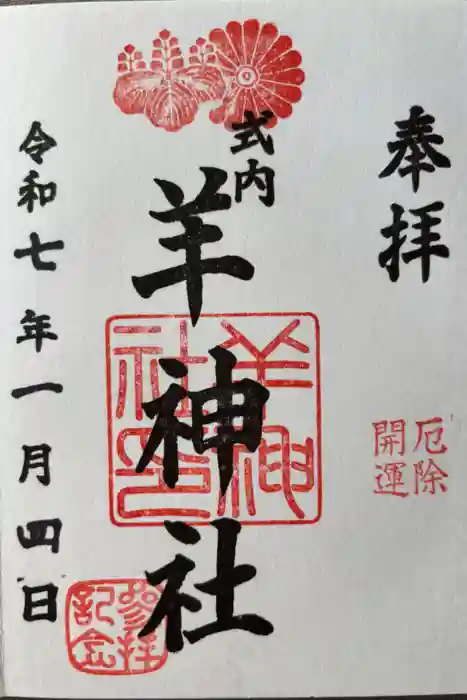 奉拝
厄除
開運
式内
羊神社
羊神社印
令和七年一月四日
参拝記念